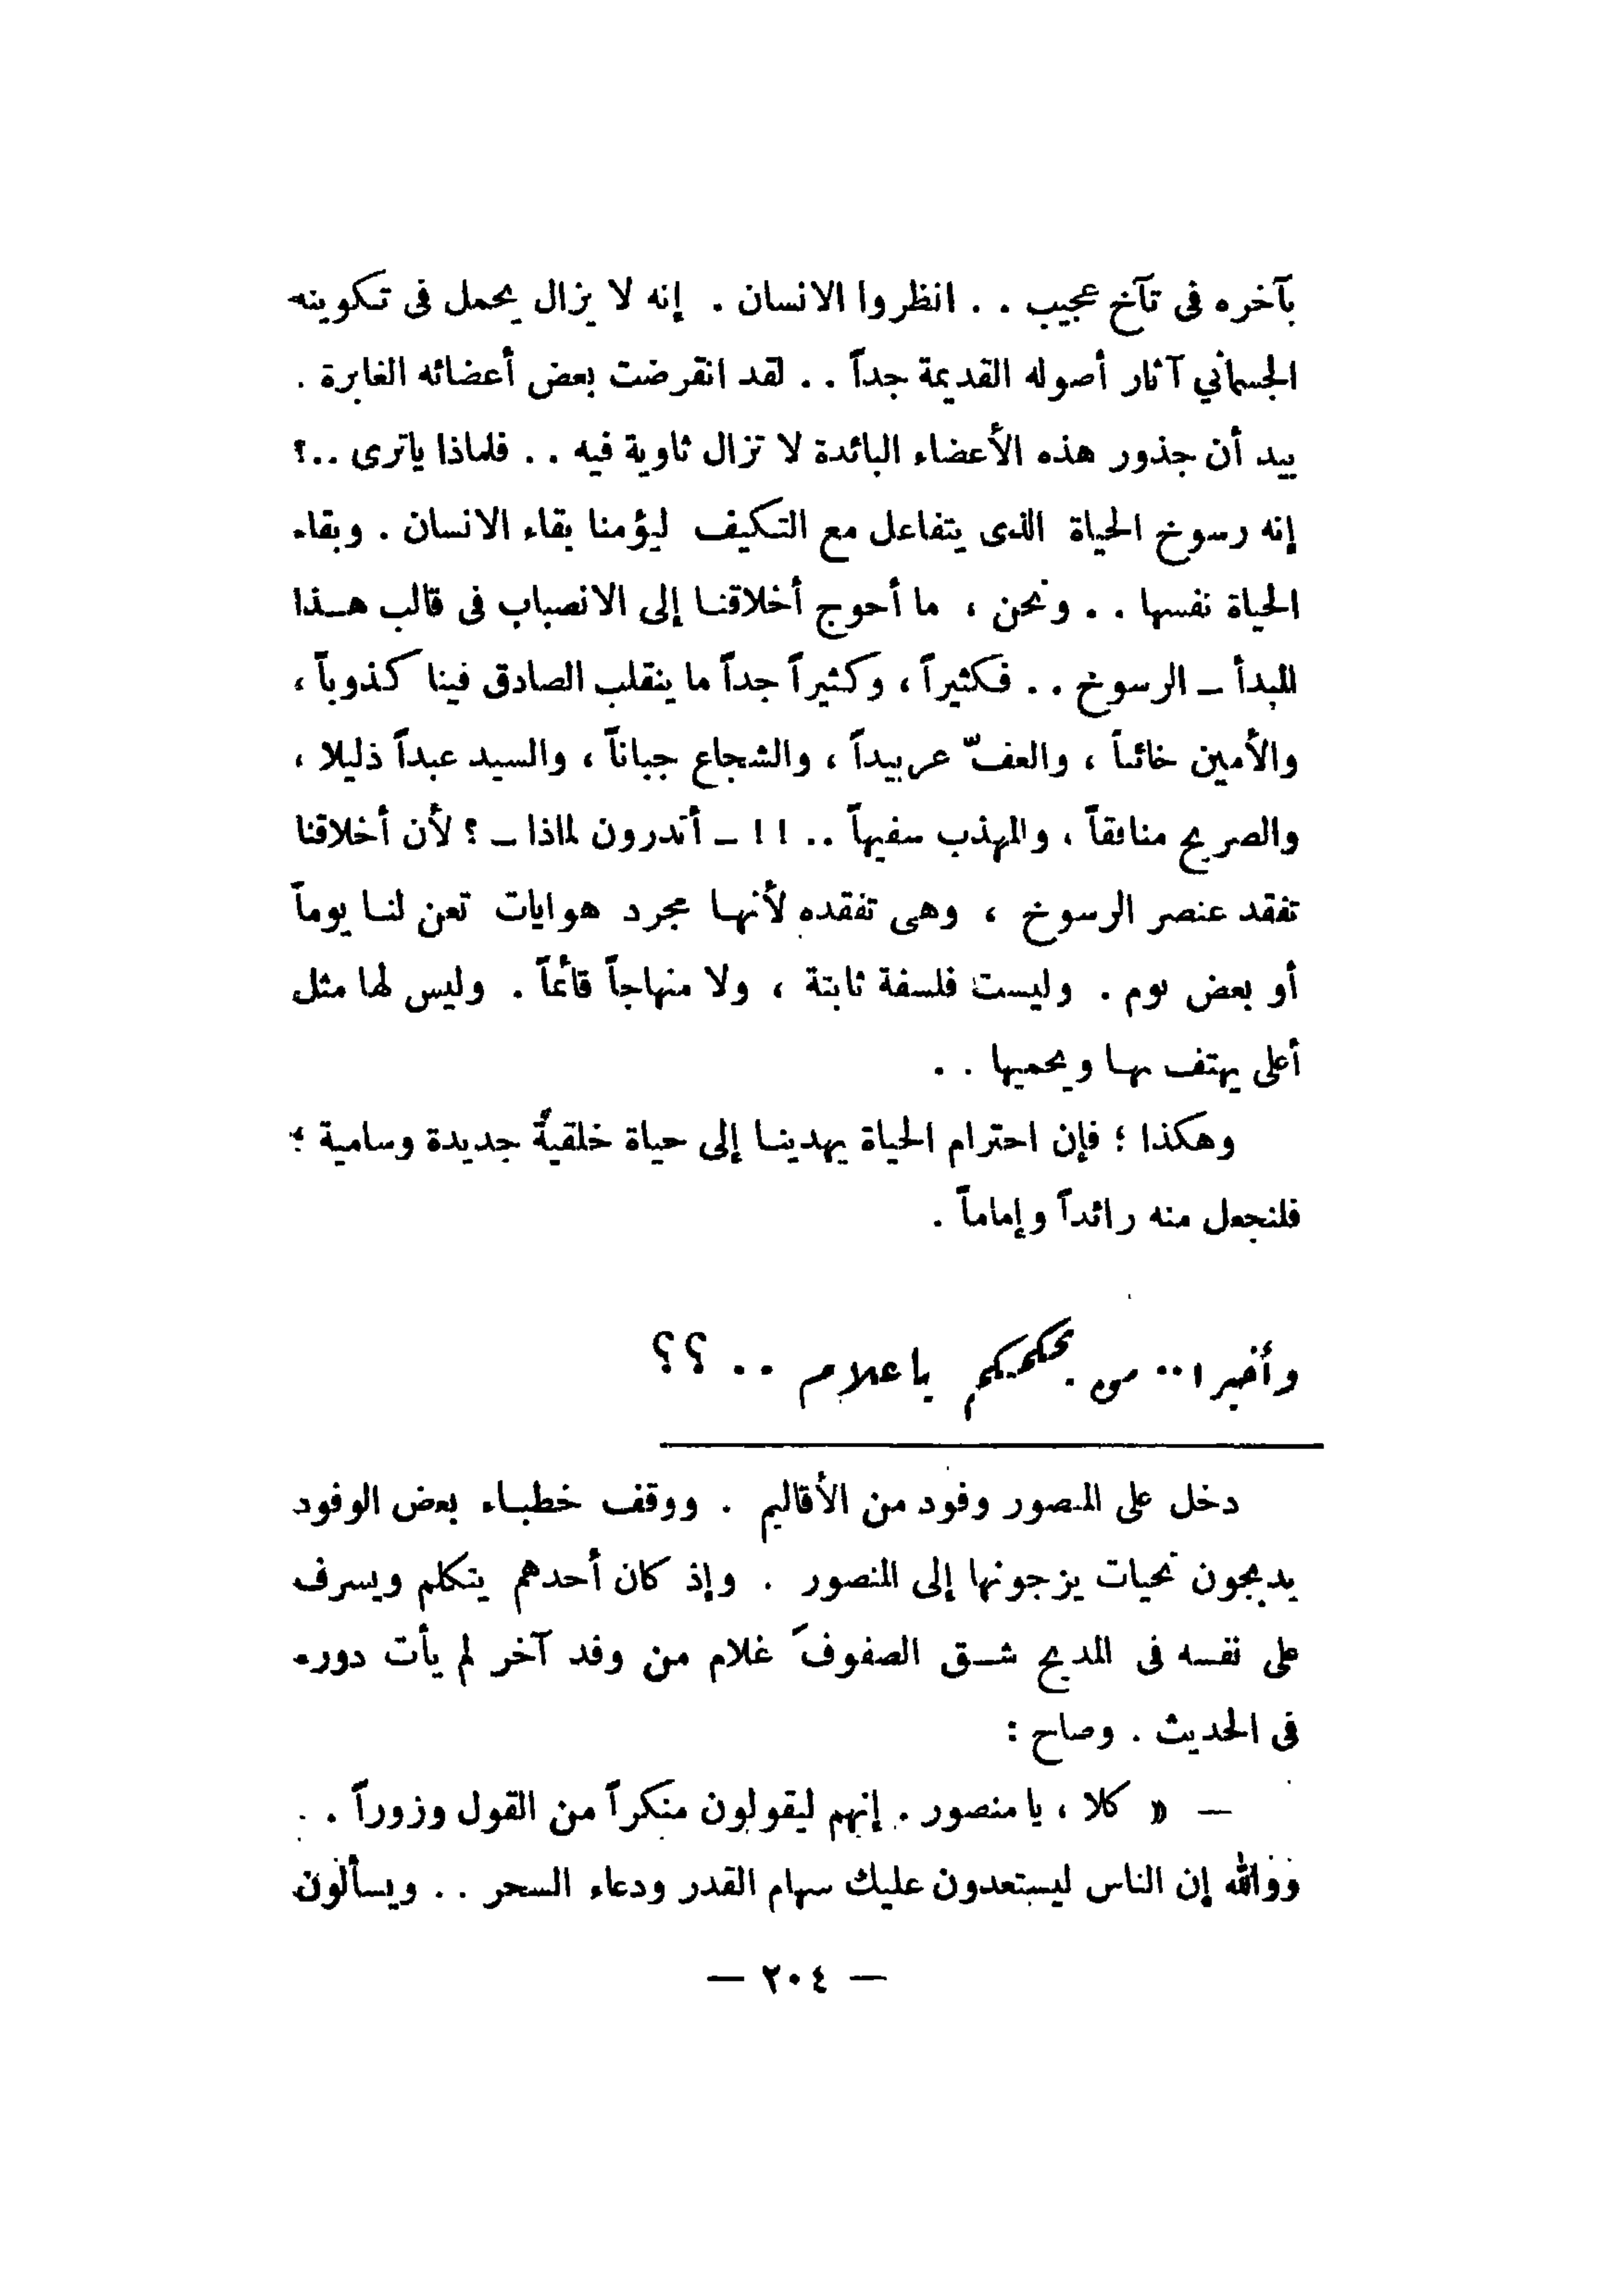 بآخره فى تآخ عجيب . . انظروا الانسان . إنه لا يزال يحمل فى تكوينه
الجسماني آثار أصوله القديمة جداً . . لقد انقرضت بعض أعضائه الغابرة .
بيد أن جذور هذه الأعضاء البائدة لا تزال ثاوية فيه . . فلماذا ياترى ..؟
إنه رسوخ الحياة الذى يتفاعل مع التكيف ليؤمنا بقاء الانسان . وبقاء
الحياة نفسها . . ونحن ، ما أحوج أخلاقنا إلى الانصباب فى قالب هذا
المبدأ ـ الرسوخ . . فكثيراً ، وكثيراً جداً ما ينقلب الصادق فينا كذوباً ،
والأمين خائناً ، والعفّ عربيداً ، والشجاع جباناً ، والسيد عبداً ذليلا ،
والصريح منافقاً ، والمهذب سفيهاً .. ! ! ـ أتدرون لماذا ـ ؟ لأن أخلاقنا
تفقد عنصر الرسوخ ، وهى تفقده لأنها مجرد هوايات تعن لنا يوماً
أو بعض يوم . وليست فلسفة ثابتة ، ولا منهاجاً قائماً . وليس لها مثل
أعلى يهتف بها ويحميها . .
وهكذا ؛ فإن احترام الحياة يهدينا إلى حياة خلقية جديدة وسامية ؛
فلنجعل منه رائداً وإماماً .
وأخيرا .. من يحكمكم ياغلام .. ؟؟
دخل على المنصور وفود من الأقاليم . ووقف خطباء بعض الوفود
يدبجون تحيات يزجونها إلى المنصور . وإذ كان أحدهم يتكلم ويسرف
على نفسه فى المديح شق الصفوف غلام من وفد آخر لم يأت دوره
فى الحديث . وصاح :
— « كلا ، يا منصور . إنهم ليقولون منكراً من القول وزوراً . .
ووالله إن الناس ليستعدون عليك سهام القدر ودعاء السحر . . ويسألون
— ٢٠٤ —